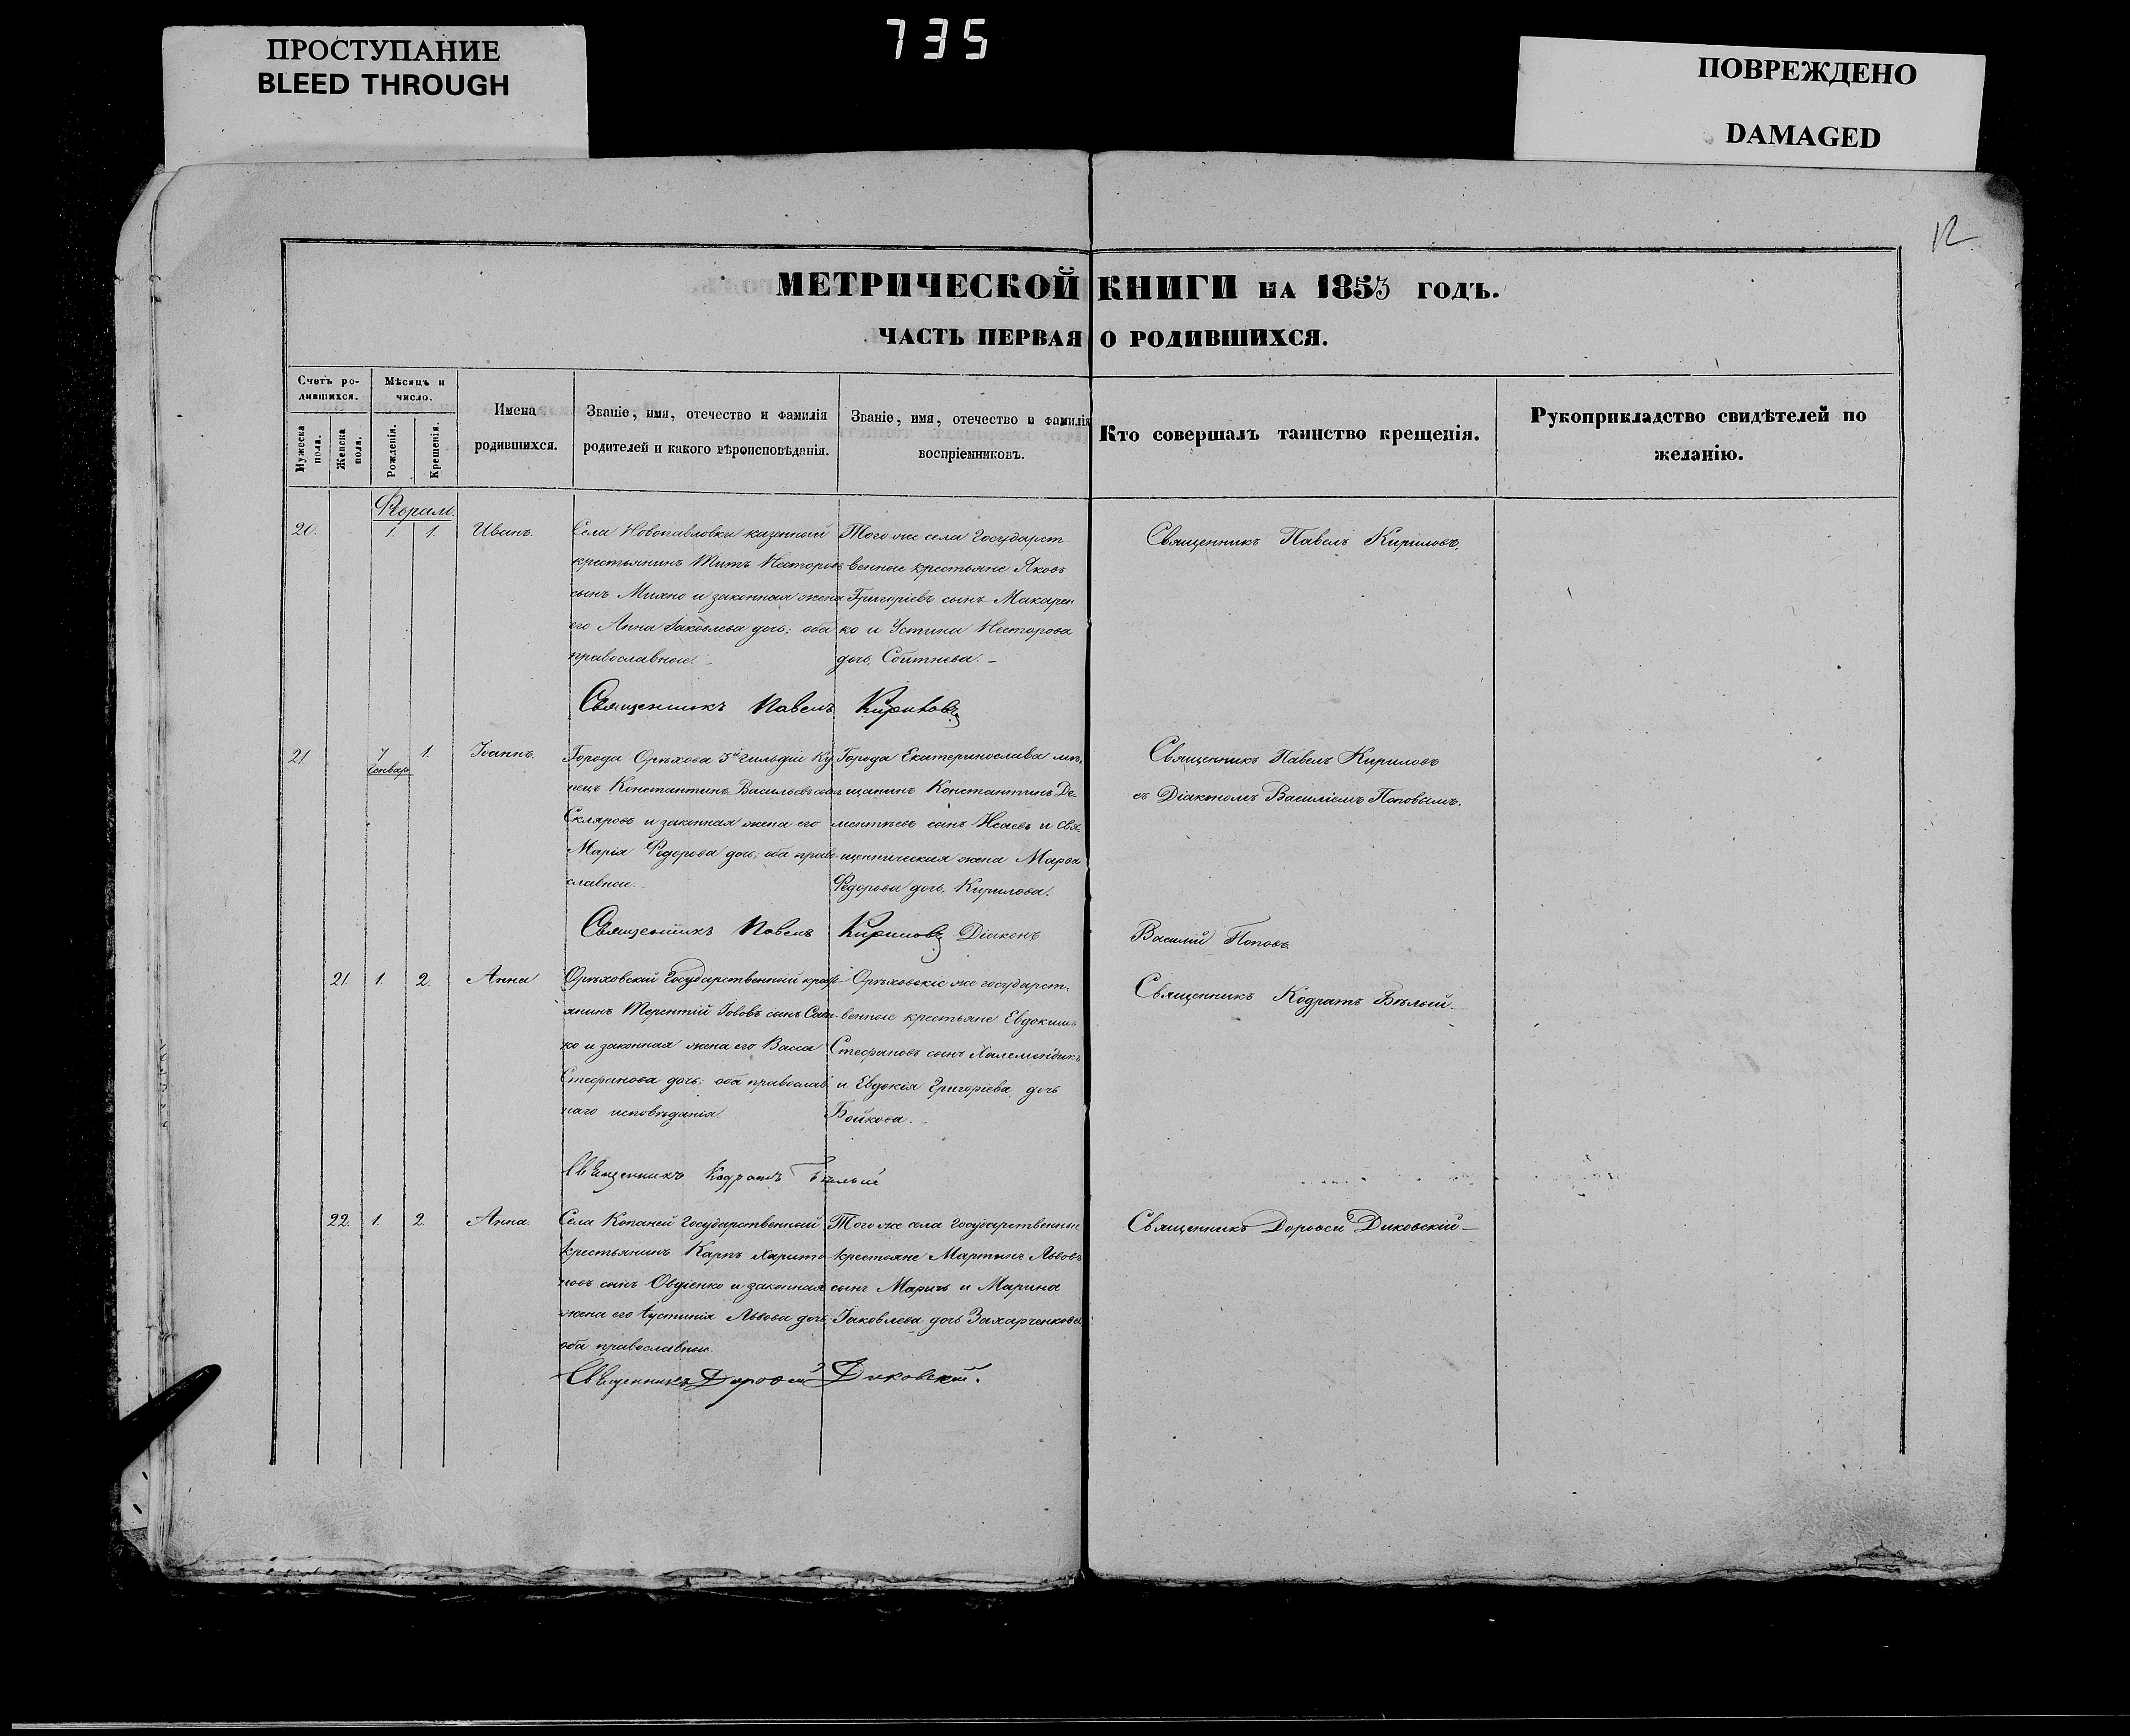 735
ПРОСТУПАНИЕ
BLEED THROUGH
ПОВРЕЖДЕНО
DAMAGED
12
МЕТРИЧЕСКОЙ КНИГИ НА 1853 ГОДЪ.
ЧАСТЬ ПЕРВАЯ О РОДИВШИХСЯ.
Счетъ ро-
дившихся.
Мужеска
пола.
Женска
пола.
Мѣсяцъ и
число.
Рожденія.
Крещенія.
Имена
родившихся.
Званіе, имя, отечество и фамилія
родителей и какого вѣроисповѣданія.
Званіе, имя, отечество и фамилія
воспріемниковъ.
Кто совершалъ таинство крещенія.
Рукоприкладство свидѣтелей по
желанію.
20.
1.
1.
Иванъ.
Села Новопавловки казенный
крестьянинъ Титъ Несторовъ
сынъ Михно и законная жена
его Анна Іаковлева дочь; оба
православные.
Того же села Государст
венные крестьяне Яковъ
Григоріевъ сынъ Макарен
ко и Устина Несторова
дочь Сбитнева.
Священникъ Павелъ Кириловъ.
Священникъ Павелъ Кириловъ
21.
7
Генвар
1.
Іоаннъ.
Города Орѣхова 3й гильдіи Ку
пецъ Константинъ Васильевъ сынъ
Скляровъ и законная жена его
Марія Федорова дочь; оба право
славные.
Города Екатеринослава мѣ
щанинъ Константинъ Де-
ментьевъ сынъ Исаевъ и свя-
щенническая жена Марѳа
Федорова дочь Кирилова.
Священникъ Павелъ Кириловъ
съ Діакономъ Василіемъ Поповымъ.
Священникъ Павелъ Кириловъ Діаконъ
Василій Поповъ
21.
1.
2.
Анна
Орѣховскій Государственный крест
янинъ Терентій Іововъ сынъ
ко и законная жена его Васса
Стефанова дочь; оба православ
наго исповѣданія.
Орѣховскіе же государст-
венные крестьяне Евдокимъ
Стефановъ сынъ
и Евдокія Григоріева дочь
Бойкова.
Священникъ Кодратъ Бѣлый.
Священникъ Кодратъ Бѣлый
22.
1.
2.
Анна.
Села Копаней Государственный
крестьянинъ Карпъ Харито-
новъ сынъ Овдіенко и законная
жена его Іустинія Львова дочь,
оба православные.
Того же села Государственные
крестьяне Мартинъ Львовъ
сынъ и Марина
Іаковлева дочь Захарченкова
Священникъ Дороѳей Диковскій
Священникъ Дороѳей Диковскій.